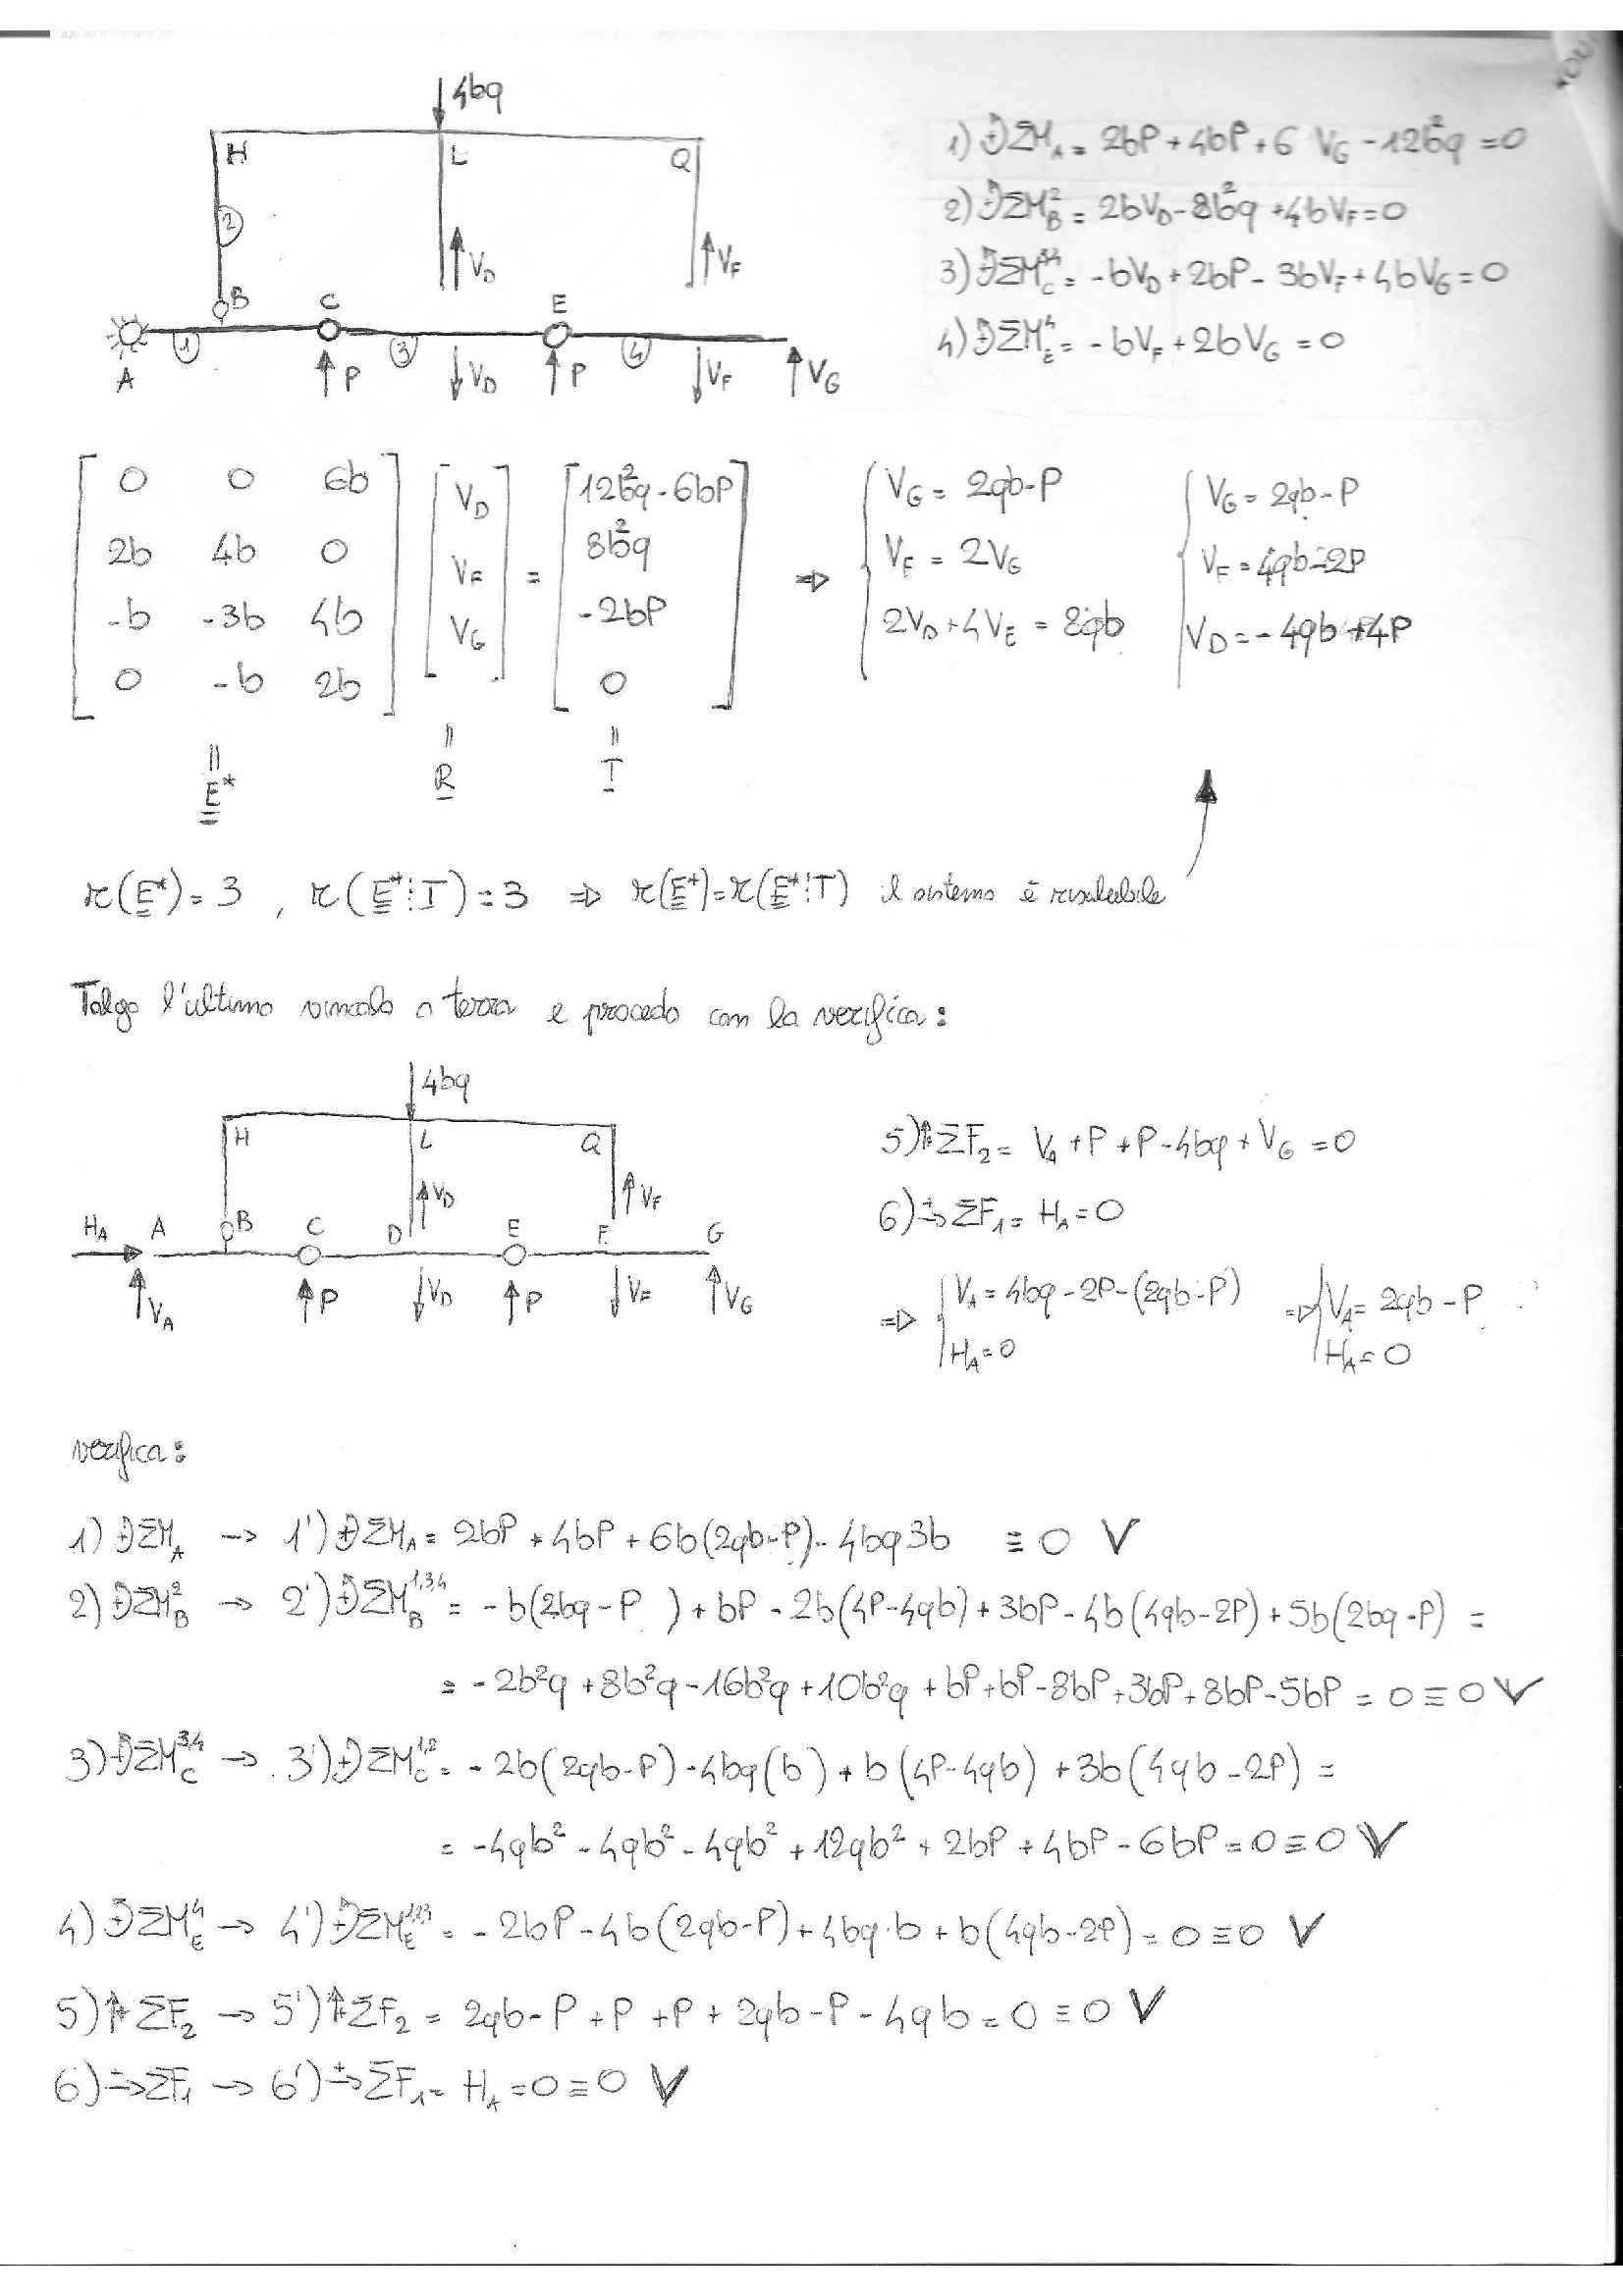 4bq
H L Q
2
V_D V_F
B C E
1 3 4
A P V_D P V_F V_G
1) ΣM_A = 2bP + 4bP + 6 V_G - 12b²q = 0
2) ΣM_B² = 2bV_D - 8b²q + 4bV_F = 0
3) ΣM_C³,⁴ = -bV_D + 2bP - 3bV_F + 4bV_G = 0
4) ΣM_E⁴ = -bV_F + 2bV_G = 0
0 0 6b V_D 12b²q - 6bP V_G = 2qb - P V_G = 2qb - P
2b 4b 0 V_F = 8b²q ⇒ V_F = 2V_G V_F = 4qb - 2P
-b -3b 4b V_G -2bP 2V_D + 4V_E = 8qb V_D = -4qb + 4P
0 -b 2b 0
= = =
E* R T
r(E*) = 3 , r(E*⋮T) = 3 ⇒ r(E*) = r(E*⋮T) il sistema è risolubile
Tolgo l'ultimo vincolo a terra e procedo con la verifica:
4bq
H L Q
V_D V_F
H_A A B C D E F G
V_A P V_D P V_F V_G
5) ΣF₂ = V_A + P + P - 4bq + V_G = 0
6) ΣF₁ = H_A = 0
⇒ V_A = 4bq - 2P - (2qb - P) ⇒ V_A = 2qb - P
H_A = 0 H_A = 0
verifica:
1) ΣM_A → 1') ΣM_A = 2bP + 4bP + 6b(2qb - P) - 4bq3b ≡ 0 V
2) ΣM_B² → 2') ΣM_B¹,³,⁴ = -b(2bq - P ) + bP - 2b(4P - 4qb) + 3bP - 4b(4qb - 2P) + 5b(2bq - P) =
= -2b²q + 8b²q - 16b²q + 10b²q + bP + bP - 8bP + 3bP + 8bP - 5bP = 0 ≡ 0 V
3) ΣM_C³,⁴ → 3') ΣM_C¹,² = -2b(2qb - P) - 4bq(b) + b(4P - 4qb) + 3b(4qb - 2P) =
= -4qb² - 4qb² - 4qb² + 12qb² + 2bP + 4bP - 6bP = 0 ≡ 0 V
4) ΣM_E⁴ → 4') ΣM_E¹²³ = -2bP - 4b(2qb - P) + 4bq·b + b(4qb - 2P) = 0 ≡ 0 V
5) ΣF₂ → 5') ΣF₂ = 2qb - P + P + P + 2qb - P - 4qb = 0 ≡ 0 V
6) ΣF₁ → 6') ΣF₁ = H_A = 0 ≡ 0 V